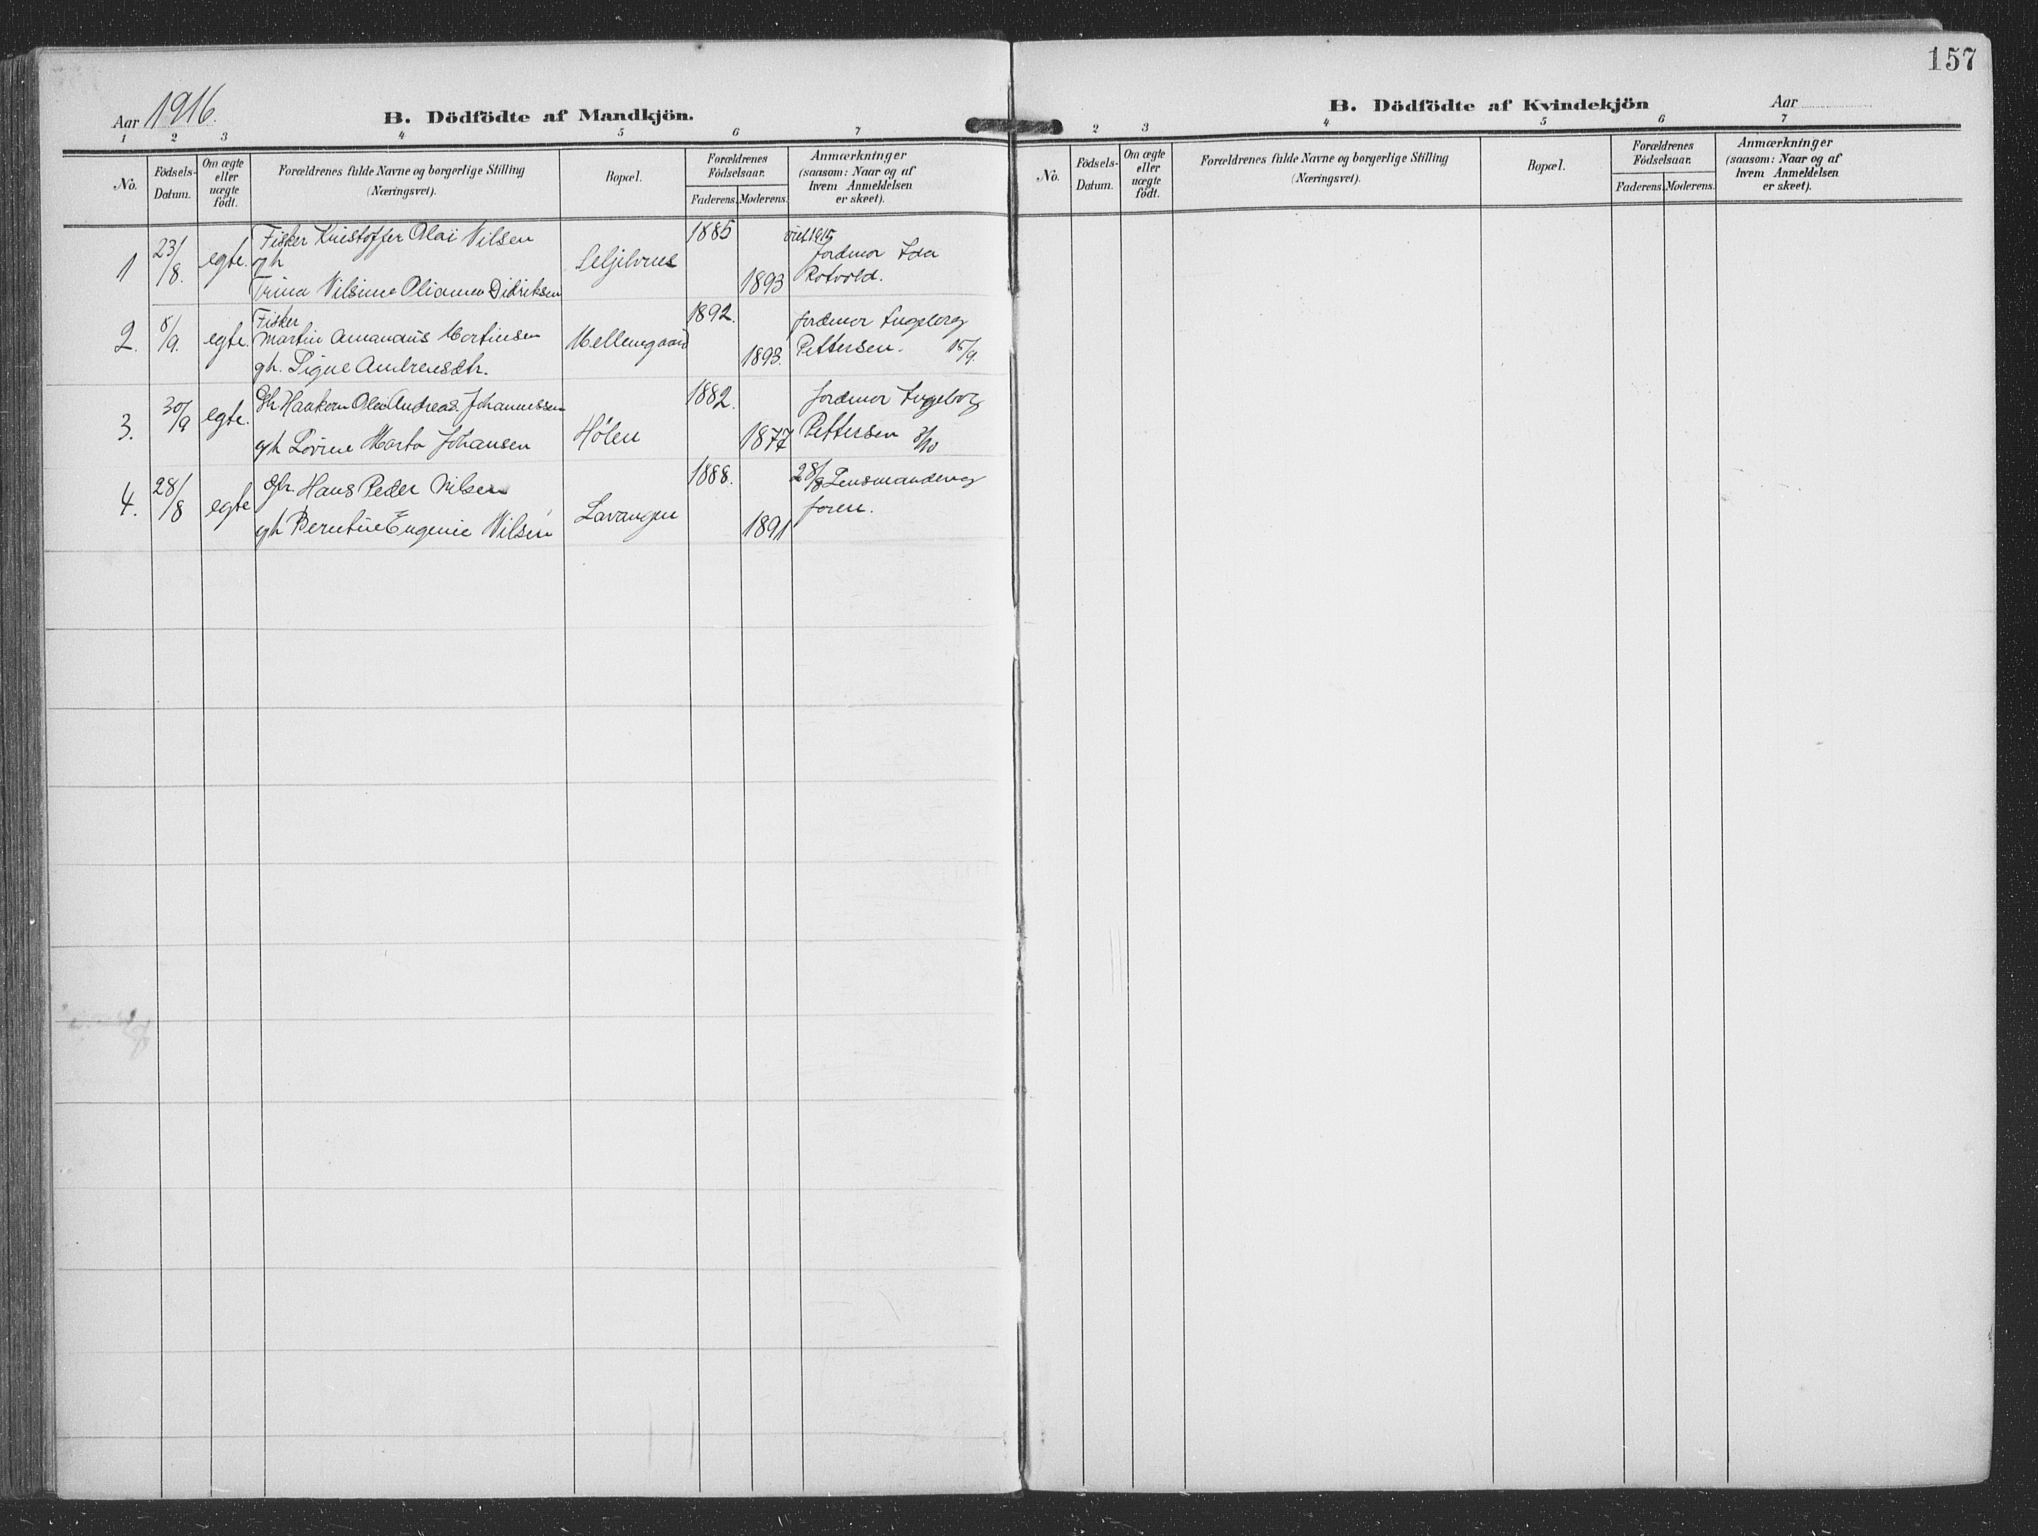 157
Aar 1916.
B. Dödfödte af Mandkjön.
1 2 3 4 5 6 7
No.
Födsels-Datum.
Om ægte eller uægte födt.
Forældrenes fulde Navne og borgerlige Stilling
(Næringsvei).
Bopæl.
Forældrenes Födselsaar.
Faderens. Moderens.
Anmærkninger
(saasom: Naar og af
hvem Anmeldelsen
er skeet).
1 23/8. egte. Fisker Kristoffer Olai Nilsen
gh
Trina Nilsine Oliamea Didriksen
Seljelvnes
1885
1893
viet 1915
Jordmor Ida
Rotvold.
2. 5/9. egte. Fisker
Martin Amandus Martinsen
gh. Signe Andreasdtr.
Mellemgaard
1892.
1893.
Jordmor Ingeborg
Pettersen. 15/9.
3. 30/9 egte. Gh Haakon Olai Andreas Johannessen
gh Lovine Marta Johansen
Hølen
1882.
1877
Jordmor Ingeborg
Pettersen 8/10
4. 28/8 egte Gh. Hans Peder Nilsen
gh Berntine Eugenie Nilsen
Lavangen
1888.
1891
28/8 Lensmanden og
foren.
B. Dödfödte af Kvindekjön
Aar
2 3 4 5 6 7
No.
Födsels-
Datum.
Om ægte
eller
uægte
födt.
Forældrenes fulde Navne og borgerlige Stilling
(Næringsvei).
Bopæl.
Forældrenes
Födselsaar.
Faderens. Moderens.
Anmærkninger
(saasom: Naar og af
hvem Anmeldelsen
er skeet).